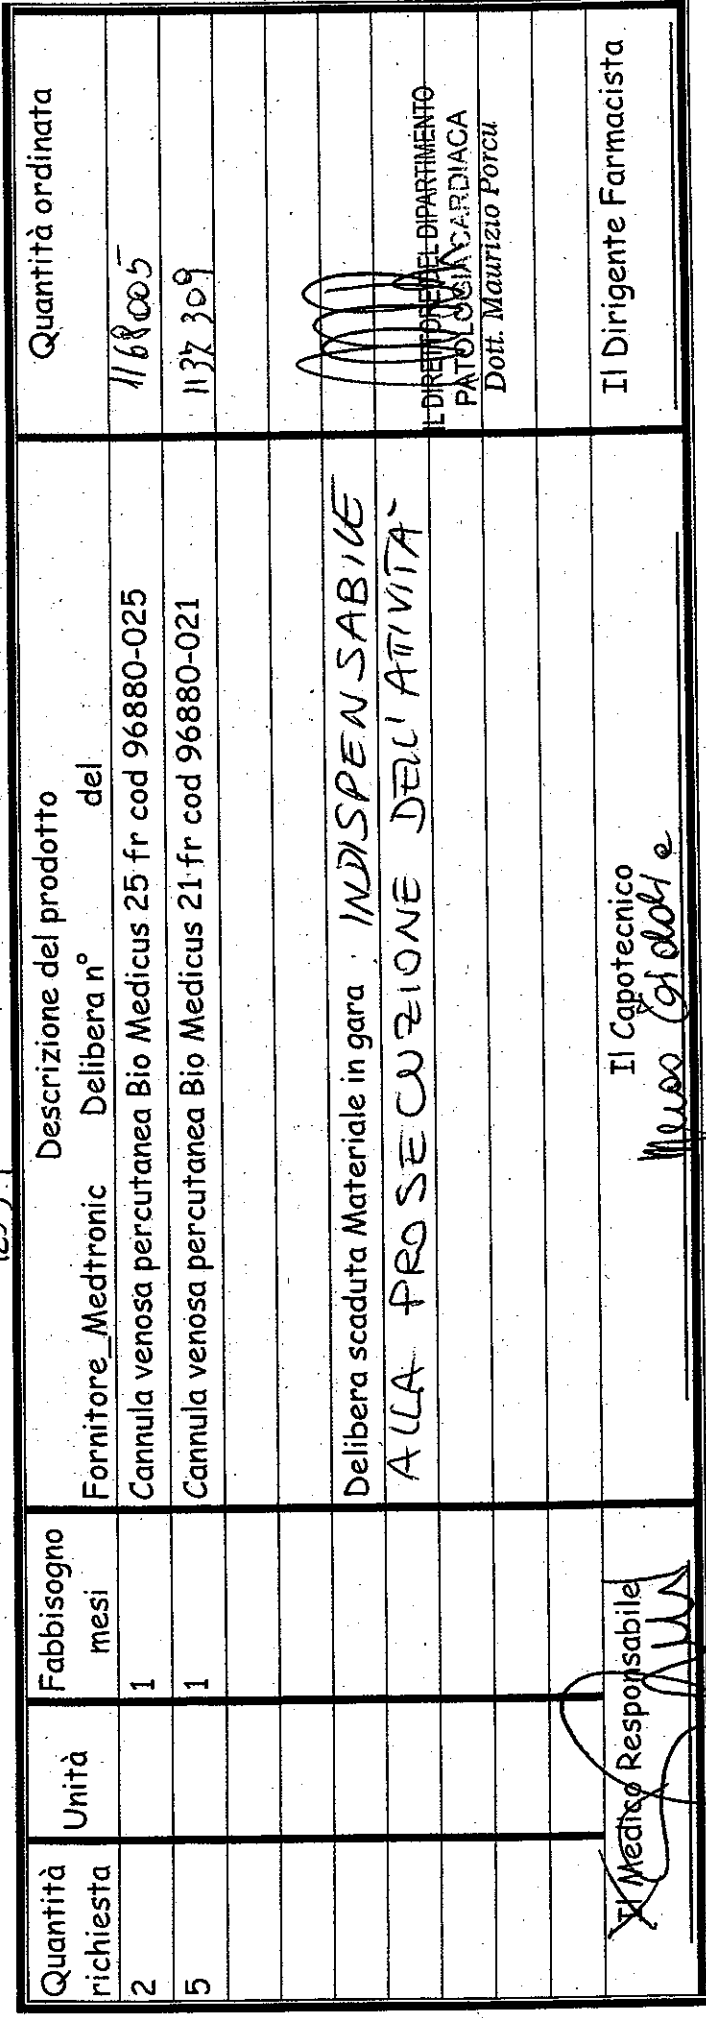 Quantità richiesta
Unità
Fabbisogno mesi
Descrizione del prodotto
Fornitore_Medtronic Delibera n° del
Quantità ordinata
2 1 Cannula venosa percutanea Bio Medicus 25 fr cod 96880-025 1168005
5 1 Cannula venosa percutanea Bio Medicus 21 fr cod 96880-021 1137309
Delibera scaduta Materiale in gara INDISPENSABILE
ALLA PROSECUZIONE DELL'ATTIVITÀ
IL DIRETTORE DEL DIPARTIMENTO
PATOLOGIA CARDIACA
Dott. Maurizio Porcu
Il Medico Responsabile
Il Capotecnico
Il Dirigente Farmacista